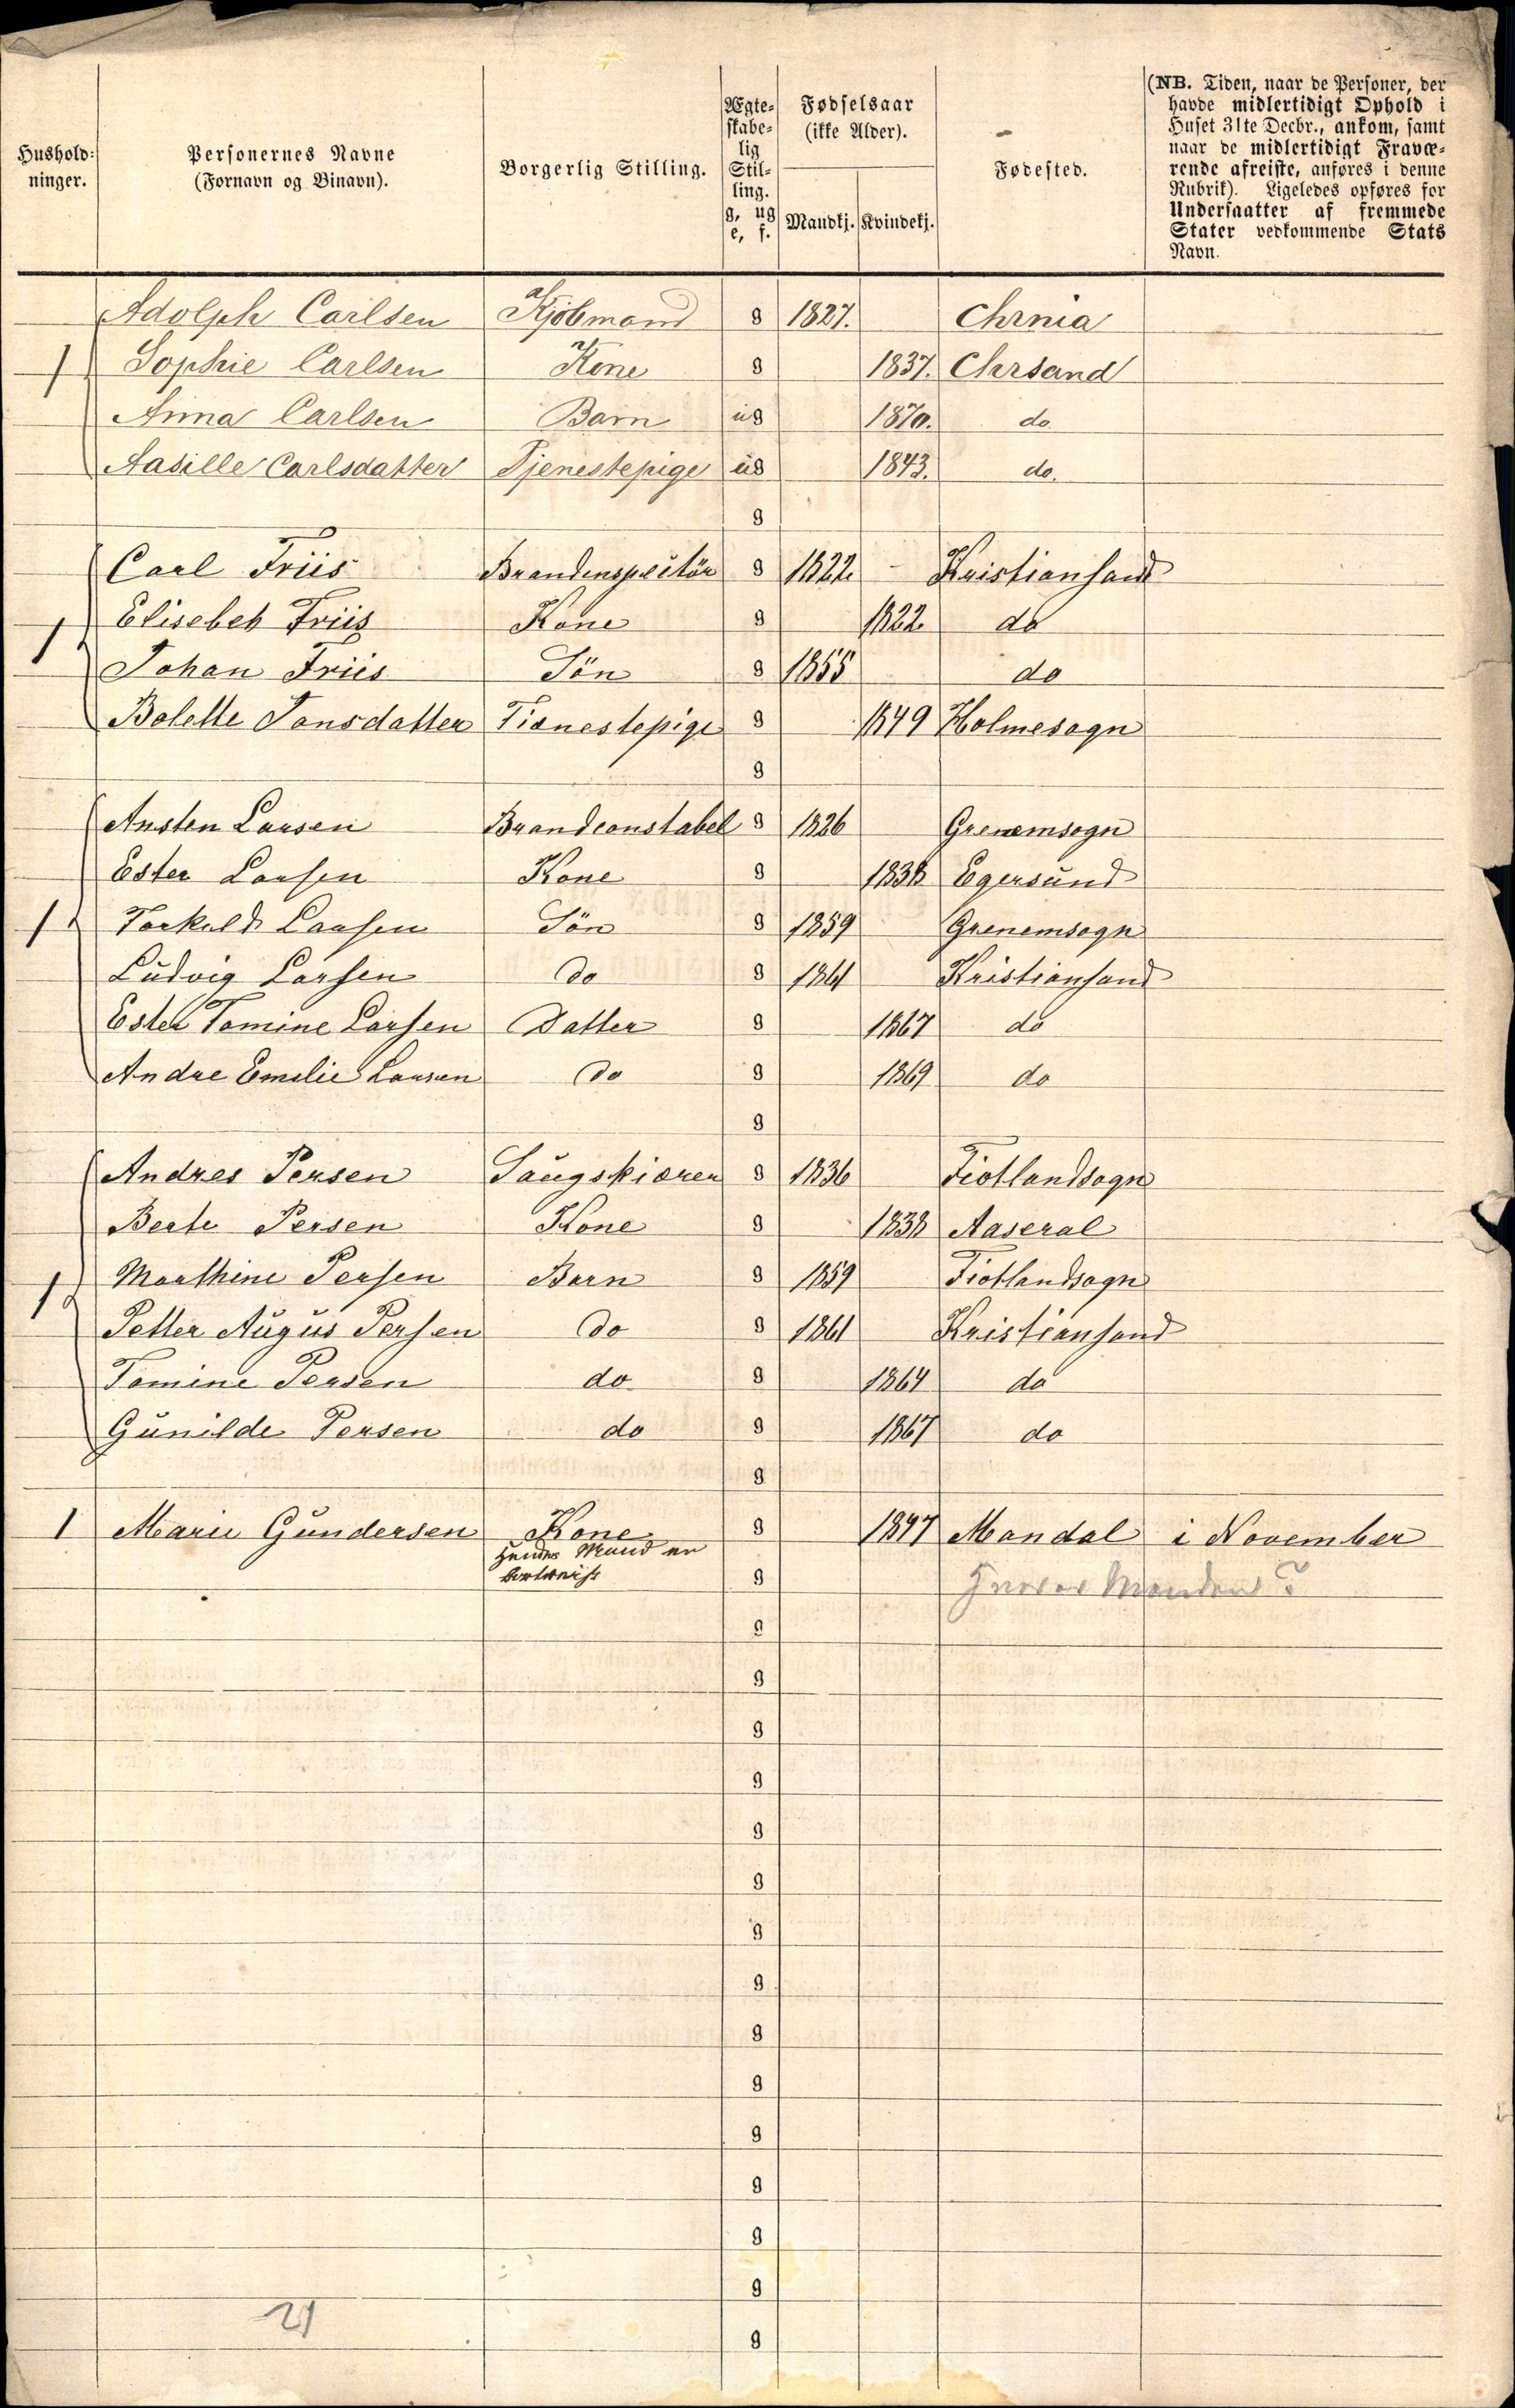 Hushold-
ninger.
Personernes Navne
(Fornavn og Binavn).
Borgerlig Stilling.
Ægte-
skabe-
lig
Stil-
ling.
g, ug
e, f.
Fødselsaar
(ikke Alder).
Mandkj. Kvindekj.
Fødested.
(NB. Tiden, naar de Personer, der
havde midlertidigt Ophold i
Huset 31te Decbr., ankom, samt
naar de midlertidigt Fravæ-
rende afreiste, anføres i denne
Rubrik). Ligeledes opføres for
Undersaatter af fremmede
Stater vedkommende Stats
Navn.
Adolph Carlsen Kjöbmand g 1827. Chrnia
1 Sophie Carlsen Kone g 1837. Chrsand
Anna Carlsen Barn ug 1870. do.
Aasille Carlsdatter Tjenestepige ug 1843. do.
g
Carl Friis Brandenspektör g 1822 Kristiansand
Elisebeh Friis Kone g 1822 do
1
Johan Friis Sön g 1855 do
Bolette Jonsdatter Tienestepige g 1849 Holmesogn
g
Ansten Larsen Brandconstabel g 1826 Grenemsogn
Ester Larsen Kone g 1838 Egersund
1 Torkeld Larsen Sön g 1859 Grenemsogn
Ludvig Larsen do g 1861 Kristiansand
Ester Tomine Larsen Datter g 1867 do
Andre Emelie Larsen do g 1869 do
g
Andres Persen Saugskiærer g 1836 Fiotlandsogn
Berte Persen Kone g 1838 Aaseral
1 Marthine Persen Barn g 1859 Fiotlandsogn
Petter Augus Persen do g 1861 Kristiansand
Tomine Persen do g 1864 do
Gunilde Persen do g 1867 do
g
1 Marie Gundersen Kone g 1847 Mandal i November
Hendes Mand er
bortreist g Hvor er Manden?
g
g
g
g
g
g
g
g
g
g
g
g
g
g
21
g